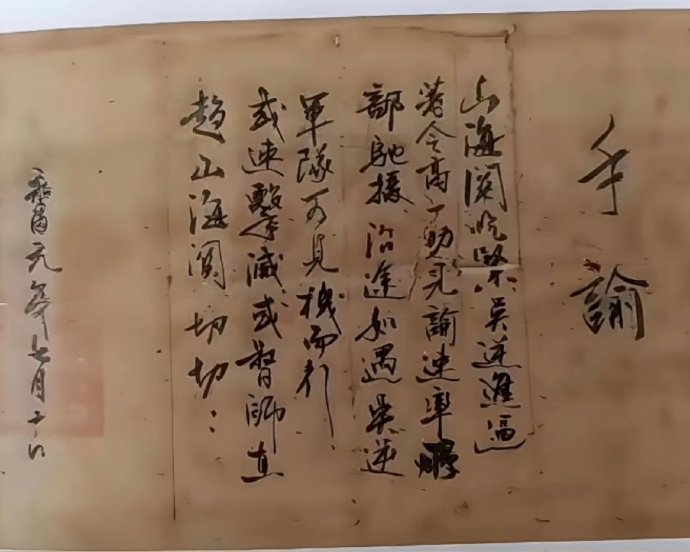 手諭
山海関吃緊吳逆進逼
着令高一功見諭速率
部馳援沿途如遇吳逆
軍隊可見機而行
或速擊滅或督師直
趨山海関切切：
元年七月十一日